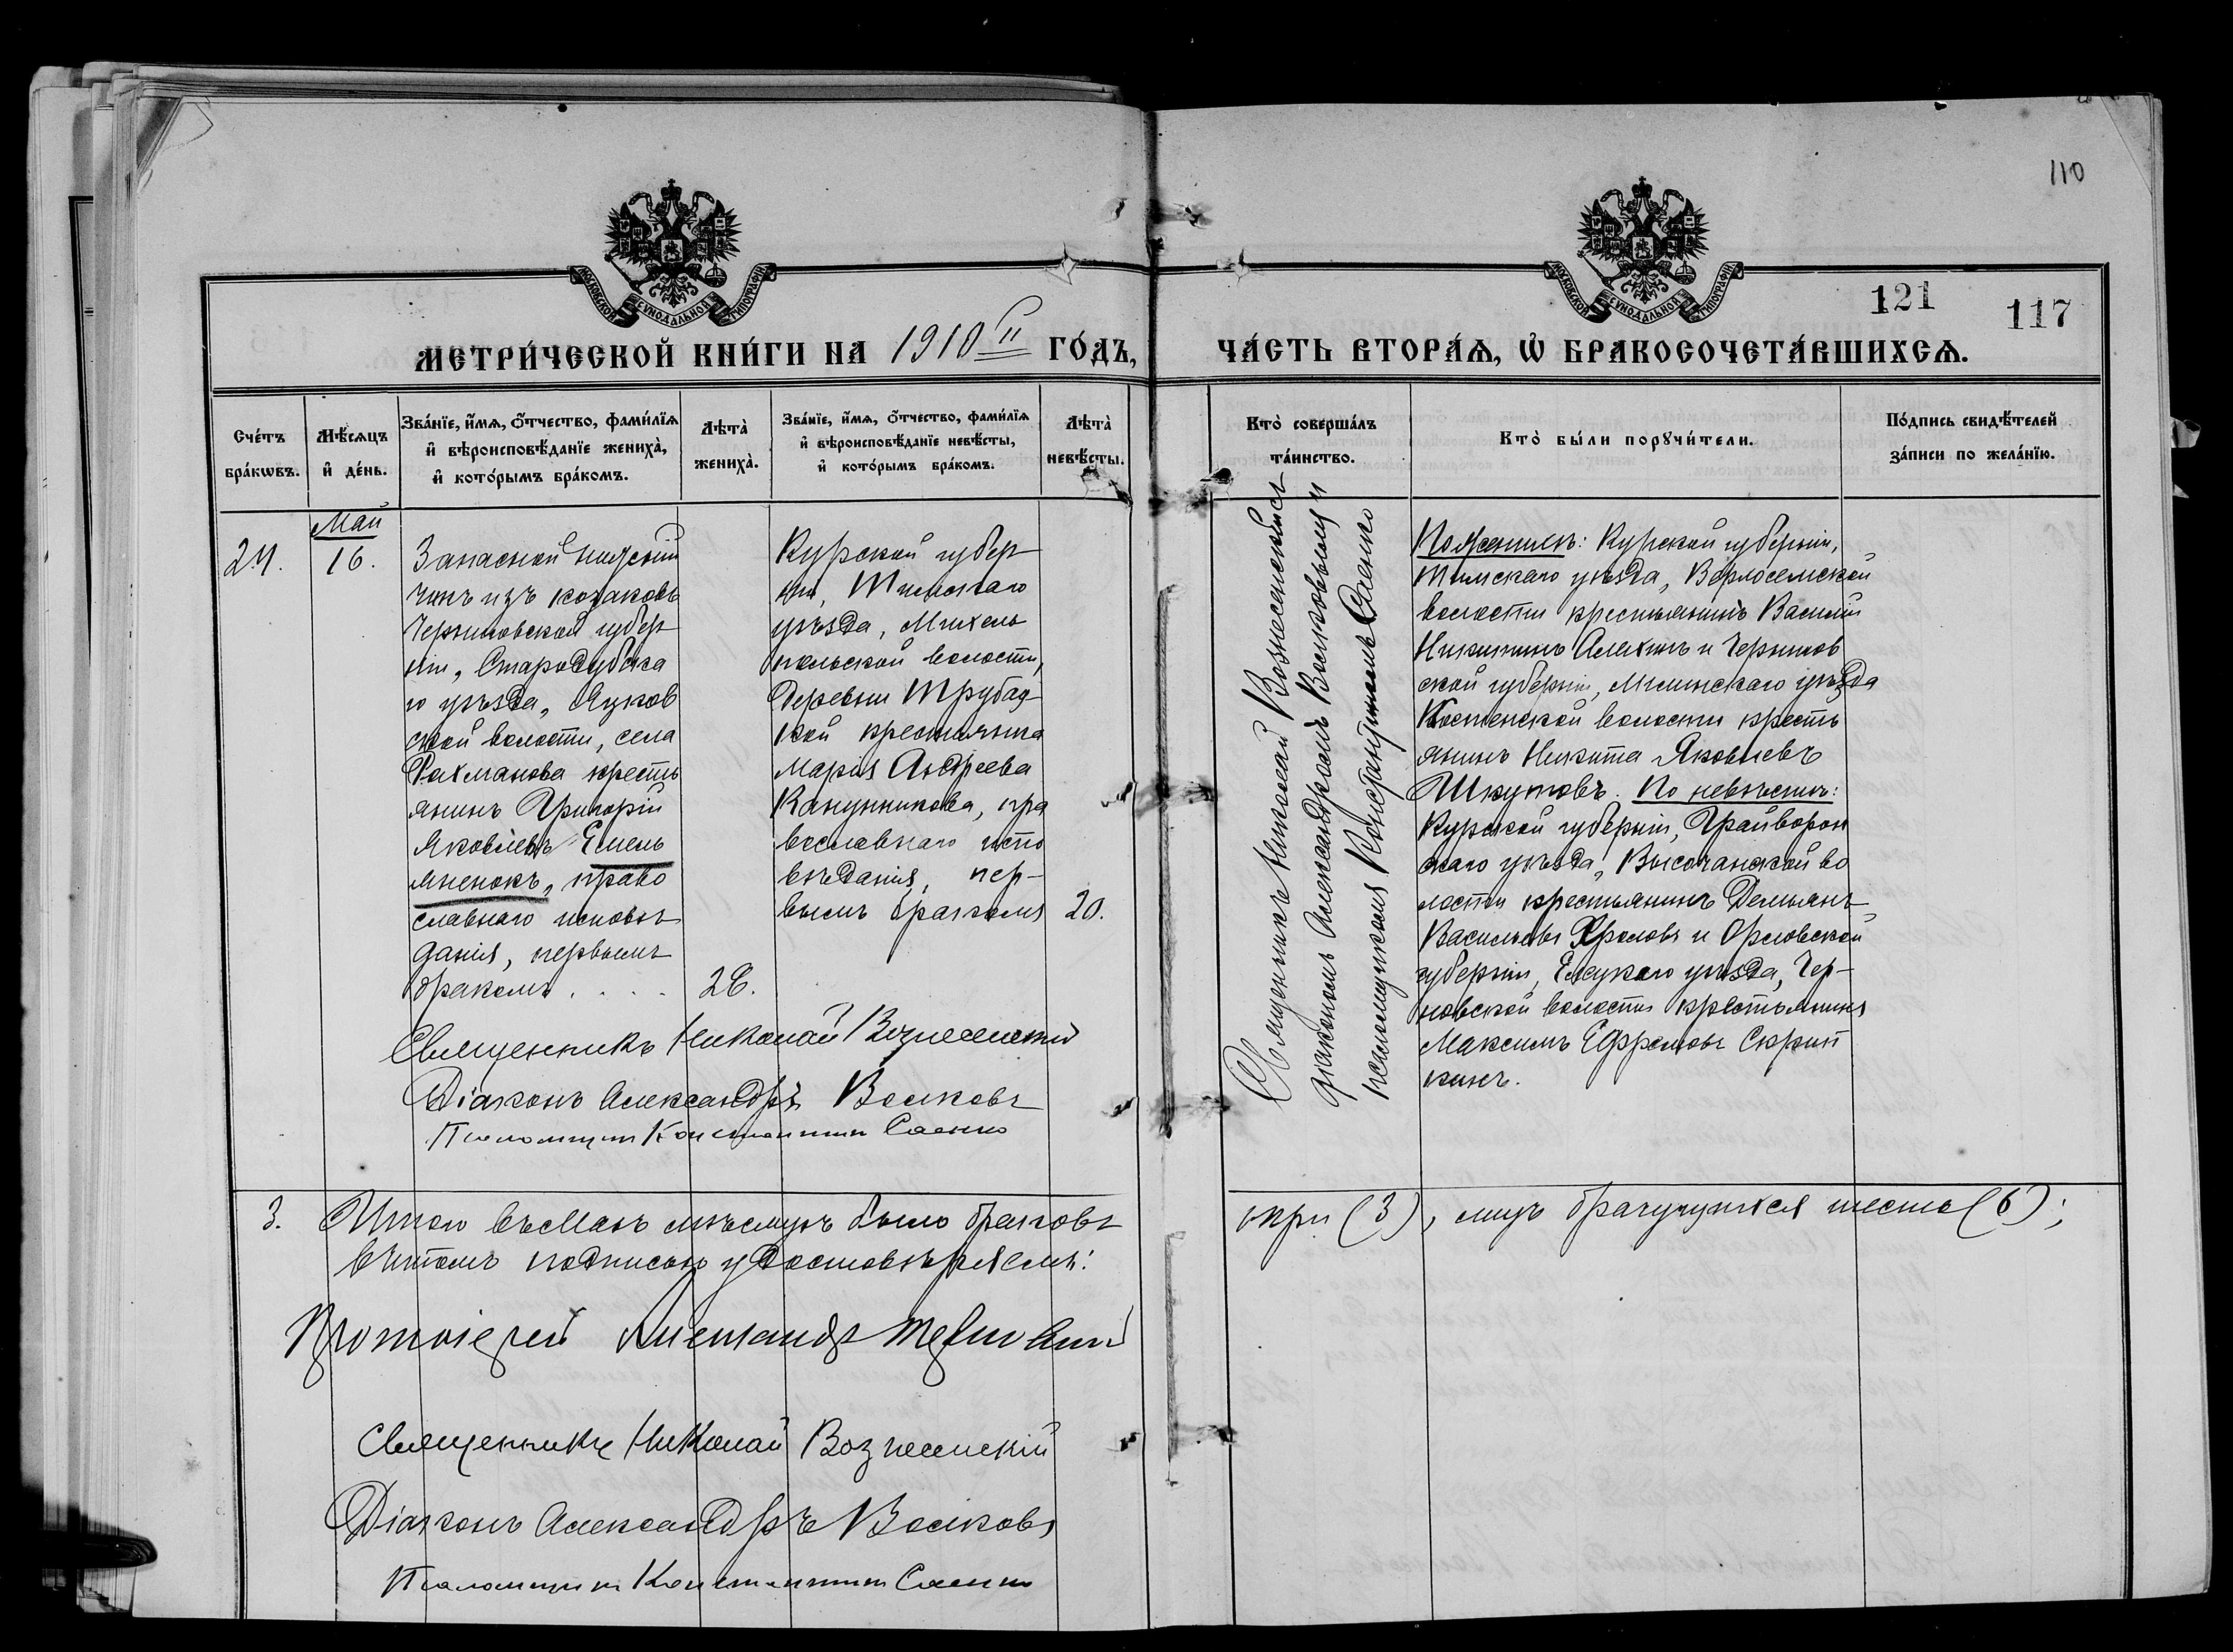 110
МОСКОВСКОЙ СѴНОДАЛЬНОЙ ТИПОГРАФІИ
МОСКОВСКОЙ СѴНОДАЛЬНОЙ ТИПОГРАФІИ
121
117
МЕТРИ́ЧЕСКОЙ КНИ́ГИ НА 1910й ГО́ДЪ,
ЧА́СТЬ ВТОРА́Ѧ, Ѡ҆ БРАКОСОЧЕТА́ВШИХСѦ.
Сче́тъ бра́кѡвъ.
Мѣ́сѧцъ и҆ де́нь.
Зва́нїе, и҆́мѧ, ѻ҆́тчество, фами́лїѧ
и҆ вѣроисповѣ́данїе жениха̀,
и҆ кото́рымъ бра́комъ.
Лѣта̀ жениха̀.
Зва́нїе, и҆́мѧ, ѻ҆́тчество, фами́лїѧ
и҆ вѣроисповѣ́данїе невѣ́сты,
и҆ кото́рымъ бра́комъ.
Лѣта̀ невѣ́сты.
Кто̀ соверша́лъ та́инство.
Кто̀ бы́ли порꙋчи́тели.
По́дпись свидѣ́телей
за́писи по жела́нїю.
24.
Май
16.
Запасной нижній
чинъ изъ козаковъ
Черниговской губер
ніи, Стародубска
го уѣзда,
ской волости, села
Рахманова кресть
янинъ Григорій
Яковлевъ Емель
яненокъ, право
славнаго исповѣ
данія, первымъ
бракомъ . . . .
28.
Курской губер
ніи, Тимскаго
уѣзда, Михель
польской волости,
деревни Трубац
кой крестьянка
Марія Андреева
Канунникова, пра
вославнаго испо
вѣданія, пер-
вымъ бракомъ
20.
Священникъ Николай Вознесенскій съ
діакономъ Александромъ Волковымъ и
псаломщикомъ Константиномъ Саенко
По женихѣ: Курской губерніи,
Тимскаго уѣзда,
волости крестьянинъ Василій
Никитинъ Алехинъ и Чернигов
ской губерніи, Мглинскаго уѣзда
Костенской волости кресть
янинъ Никита Яковлевъ
Шкутовъ. По невѣстѣ:
Курской губерніи, Грайворон
скаго уѣзда, Высочанской во
лости крестьянинъ Демьянъ
Васильевъ Фроловъ и Орловской
губерніи, Елецкаго уѣзда, Чер-
новской волости крестьянинъ
Максимъ Ефремовъ Скрип
кинъ.
Священникъ Николай Вознесенскій
Діаконъ Александръ Волковъ
Псаломщикъ Константинъ Саенко
3.
Итого въ Маѣ мѣсяцѣ было браковъ
три (3), лицъ брачущихся шесть (6);
въ чемъ подписью удостовѣряемъ:
Протоіерей Александръ
Священникъ Николай Вознесенскій
Діаконъ Александръ Волковъ
Псаломщикъ Константинъ Саенко